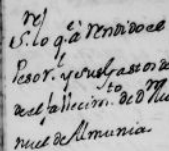 rs
S. lo q.e a rendido el
Pesor.l y sus gastos de
de el fallecim.to de D.n Ma
nuel de Almunia.